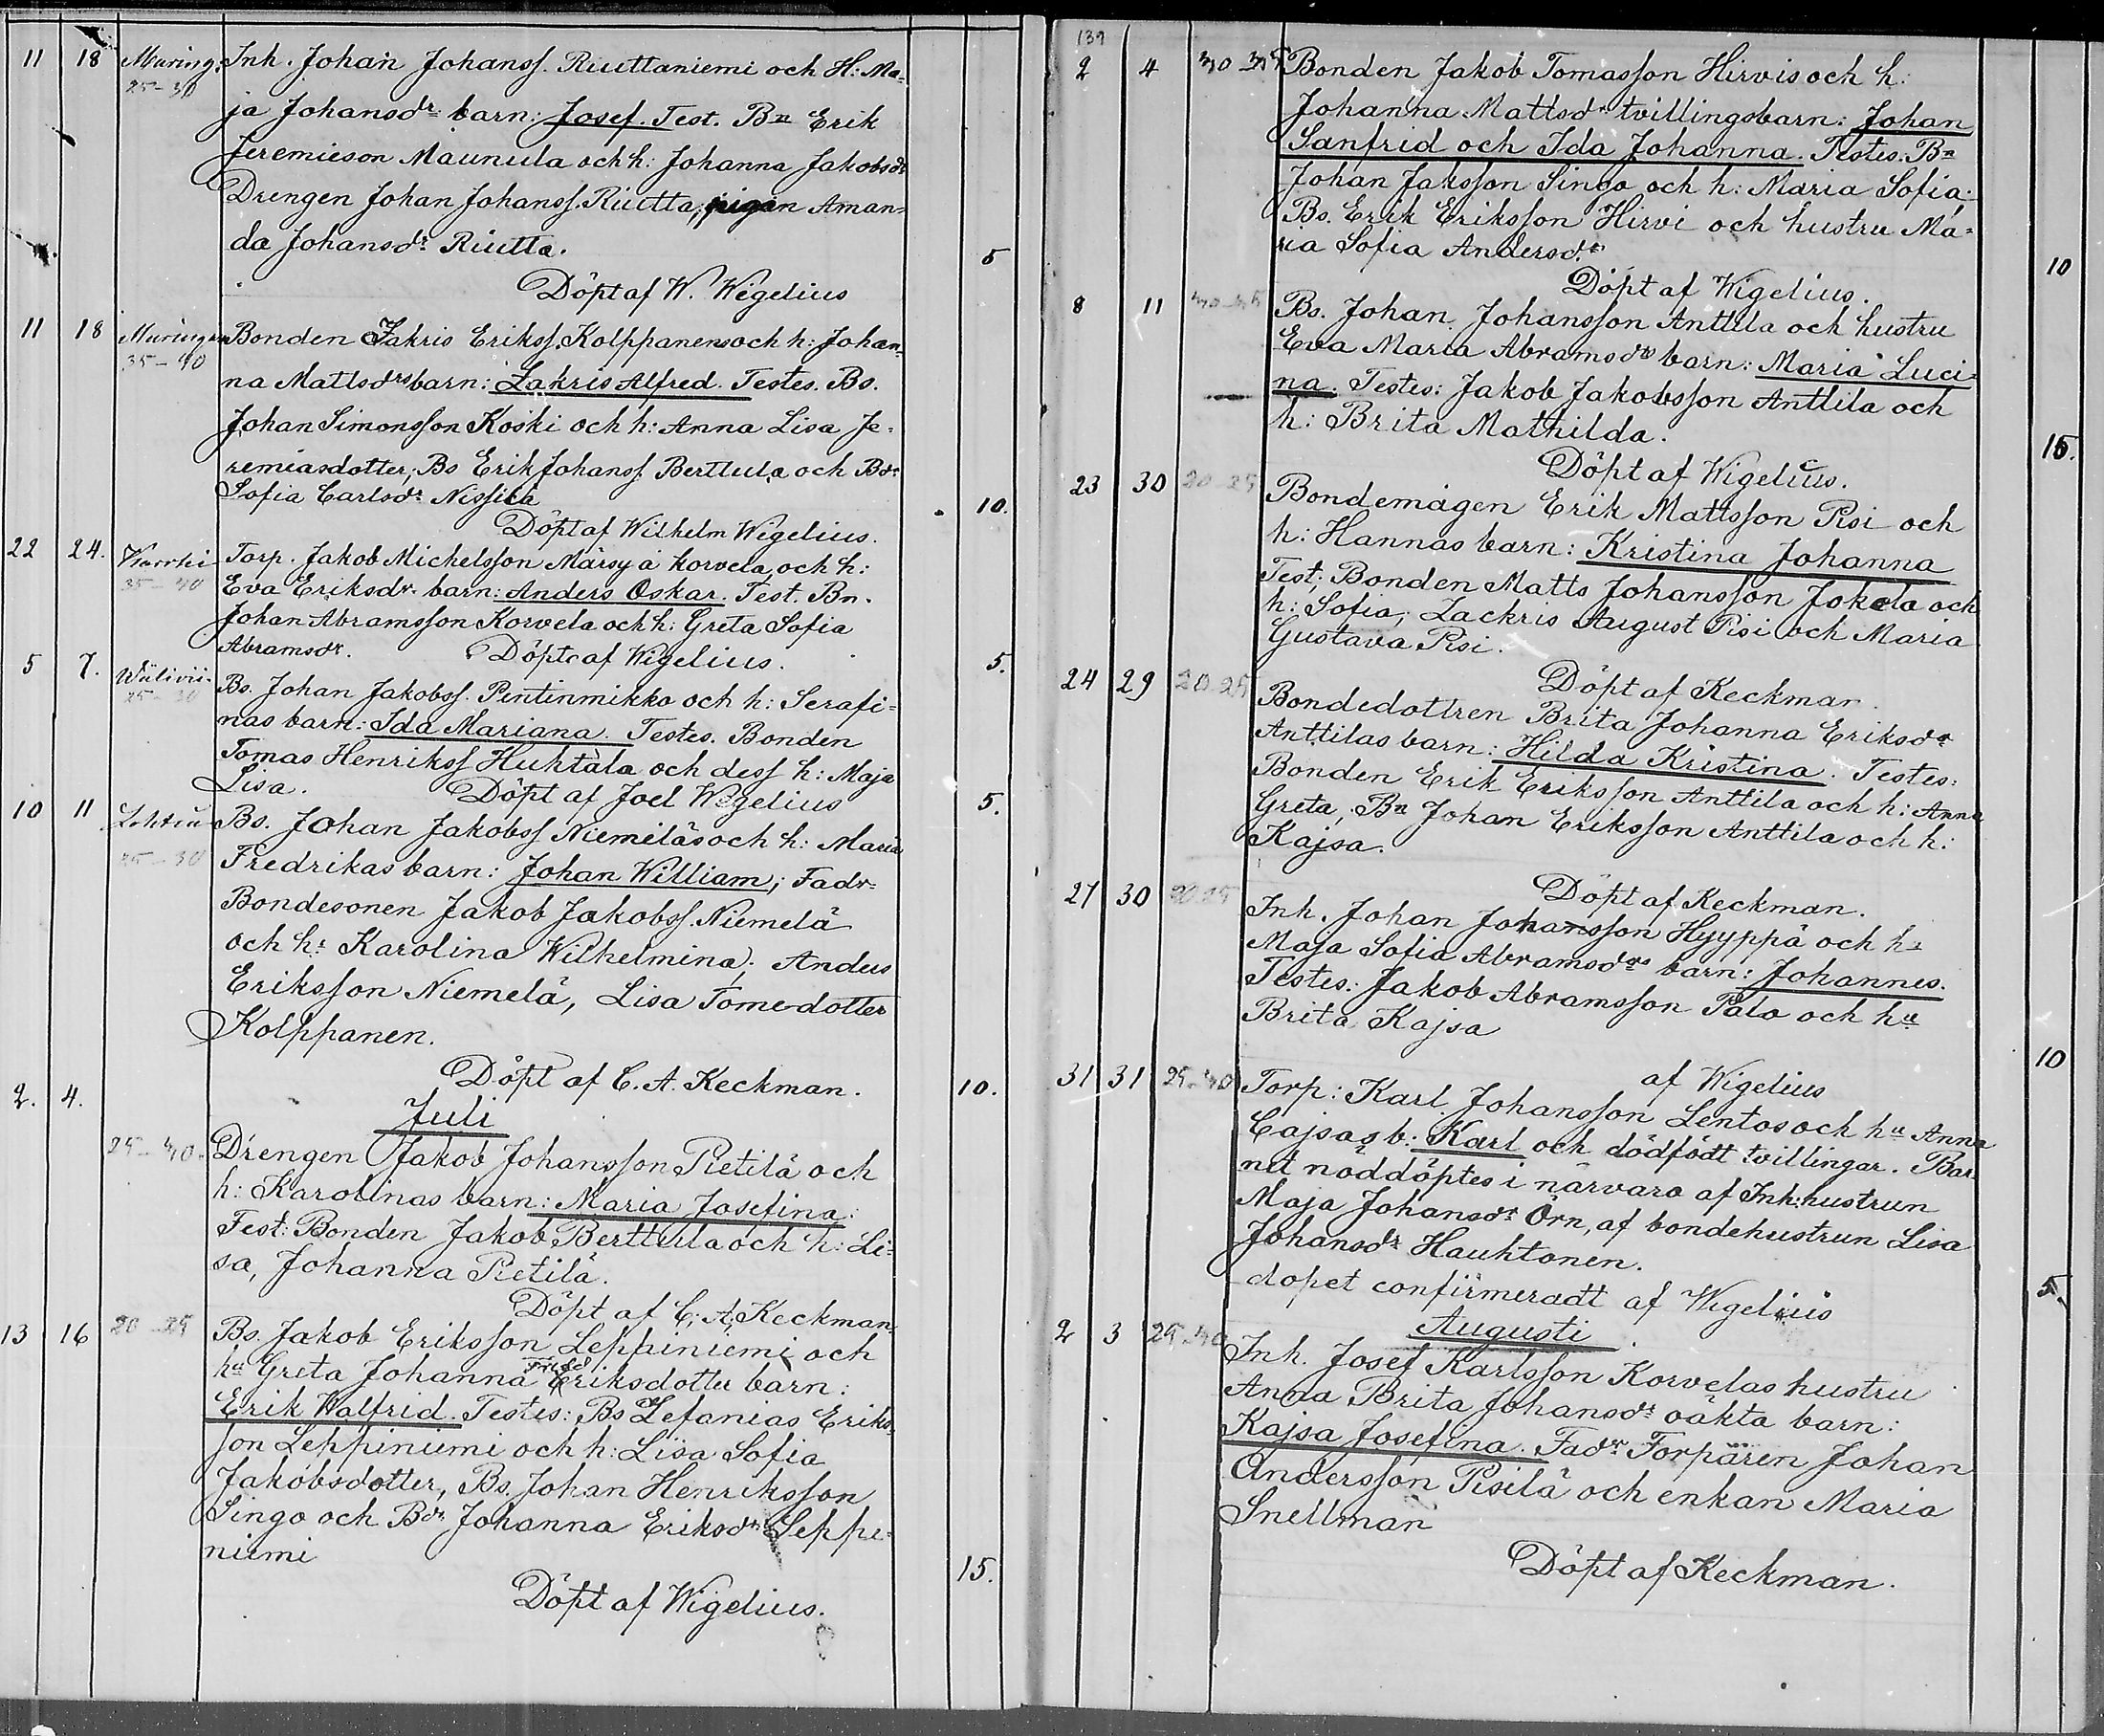 11 18 Muring. Inh. Johan Johanss. Riuttaniemi och H: Ma-
25-30
ja Johansdr. barn: Josef. Test. Bn Erik
Jeremieson Maunula och h: Johanna Jakobsdr
Drengen Johan Johanss. Riutta, pigan Aman-
da Johansdr Riutta. 5
Döpt af W. Wegelius
11 18 Bonden Zakris Erikss. Kolppanens och h: Johan-
35-40
na Mattsdrs barn: Zakris Alfred. Testes. Bs.
Johan Simonsson Koski och h: Anna Lisa Je-
remiasdotter, Bs Erik Johanss. Berttula och Bdr
Sofia Carlsdr Nissilä 10.
Döpt af Wilhelm Wigelius.
22 24. Torp. Jakob Michelsson Märsy å Korvela och h:
35-40
Eva Eriksdr. barn: Anders Oskar. Test. Bn.
Johan Abramsson Korvela och h: Greta Sofia
Abramsdr. Döpt af Wigelius. 5.
5 7. Bs. Johan Jakobss. Pentinmikko och h: Serafi-
25-30
nas barn: Ida Mariana. Testes. Bonden
Tomas Henrikss Huhtala och dess h: Maja
Lisa. Döpt af Joel Wegelius 5.
10 11 Bs. Johan Jakobss Niemeläs och h: Maria
25-30
Fredrikas barn: Johan William; Fadr
Bondesonen Jakob Jakobss. Niemelä
och h: Karolina Wilhelmina; Anders
Eriksson Niemelä, Lisa Tomedotter
Kolppanen.
Döpt af C. A. Keckman. 10.
2. 4.
Juli
25-40. Drengen Jakob Johansson Pietilä och
h: Karolinas barn: Maria Josefina.
Test: Bonden Jakob Berttula och h: Li-
sa, Johanna Pietilä.
Döpt af C. A. Keckman.
13 16 20-25 Bs. Jakob Eriksson Leppiniemi och
hu Greta Johanna Eriksdotter barn:
Erik Walfrid. Testes: Bs Zefanias Eriks-
son Leppiniemi och h: Lisa Sofia
Jakobsdotter, Bs. Johan Henriksson
Singo och Bdr Johanna Eriksdr Leppi-
niemi 15.
Döpt af Wigelius.
139
2 4 Bonden Jakob Tomasson Hirvis och h:
Johanna Mattsdr tvillingsbarn: Johan
Sanfrid och Ida Johanna. Testes: Bn
Johan Jaksson Singo och h: Maria Sofia;
Bs. Erik Eriksson Hirvi och hustru Ma-
ria Sofia Andersdr. 10
Döpt af Wigelius.
8 11 Bs. Johan Johansson Anttila och hustru
Eva Maria Abramsdrs barn: Maria Luci-
na. Testes: Jakob Jakobsson Anttila och
h: Brita Mathilda. 15.
Döpt af Wigelius.
23 30 20-25 Bondemågen Erik Mattsson Pisi och
h: Hannas barn: Kristina Johanna
Test; Bonden Matts Johansson Jokela och
h: Sofia; Zackris August Pisi och Maria
Gustava Pisi.
Döpt af Keckman.
24 29 20-25 Bondedottren Brita Johanna Eriksdr
Anttilas barn: Hilda Kristina. Testes:
Bonden Erik Eriksson Anttila och h: Anna
Greta, Bn Johan Eriksson Anttila och h:
Kajsa.
Döpt af Keckman.
27 30 20-25 Inh. Johan Johansson Hyyppä och h:
Maja Sofia Abramsdrs barn: Johannes.
Testes: Jakob Abramsson Palo och hu
Brita Kajsa 10
af Wigelius
31 31 25-40 Torp: Karl Johansson Lentos och hu Anna
Cajsas b: Karl och dödfödt tvillingar. Bar-
net nöddöptes i närvaro af Inh:hustrun
Maja Johansdr Örn, af bondehustrun Lisa
Johansdr Hauhtonen.
dopet confirmeradt af Wigelius 5.
Augusti
2 3 25-40 Inh. Josef Karlsson Korvelas hustru
Anna Brita Johansdr oäkta barn:
Kajsa Josefina. Fadr Torparen Johan
Andersson Pisilä och enkan Maria
Snellman
Döpt af Keckman.